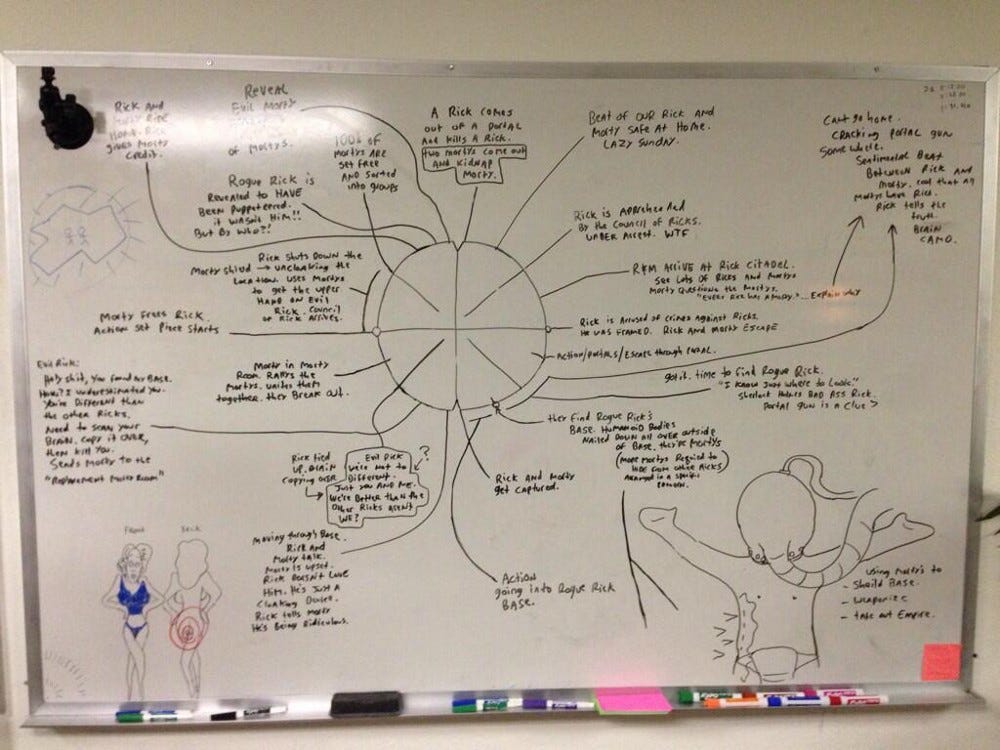 RICK AND
MORTY RIDE
HOME. RICK
GIVES MORTY
CREDIT.
REVEAL
EVIL MORTY
OF MORTYS.
100s OF
MORTYS ARE
SET FREE
AND SORTED
INTO GROUPS
A RICK COMES
OUT OF A PORTAL
AND KILLS A RICK.
TWO MORTYS COME OUT
AND KIDNAP
MORTY.
BEAT OF OUR RICK AND
MORTY SAFE AT HOME.
LAZY SUNDAY.
CAN'T GO HOME.
CRACKING PORTAL GUN
SOMEWHERE.
SENTIMENTAL BEAT
BETWEEN RICK AND
MORTY. COOL THAT ALL
MORTYS HAVE RICK.
RICK TELLS THE
TRUTH.
BRAIN
CAMO.
ROGUE RICK IS
REVEALED TO HAVE
BEEN PUPPETEERED.
IT WASN'T HIM!!
BUT BY WHO?!
RICK IS APPREHENDED
BY THE COUNCIL OF RICKS.
UNDER ARREST. WTF
RICK SHUTS DOWN THE
MORTY SHIELD → UNCLOAKING THE
LOCATION. USES MORTYS
TO GET THE UPPER
HAND ON EVIL
RICK. COUNCIL
OF RICK ARRIVES.
R&M ARRIVE AT RICK CITADEL.
SEE LOTS OF RICKS AND MORTYS
MORTY QUESTIONS THE MORTYS.
"EVERY RICK HAS A MORTY."... EXPLAIN WHY
MORTY FREES RICK.
ACTION SET PIECE STARTS
RICK IS ACCUSED OF CRIMES AGAINST RICKS.
HE WAS FRAMED. RICK AND MORTY ESCAPE
ACTION/PORTALS/ESCAPE THROUGH PORTAL.
EVIL RICK:
HOLY SHIT, YOU FOUND MY BASE.
HOW? I UNDERESTIMATED YOU.
YOU'RE DIFFERENT THAN
THE OTHER RICKS.
NEED TO SCAN YOUR
BRAIN. COPY IT OVER,
THEN KILL YOU.
SENDS MORTY TO THE
"REPLACEMENT MORTY ROOM"
MORTY IN MORTY
ROOM. RALLYS THE
MORTYS. UNITES THEM
TOGETHER. THEY BREAK OUT.
GOT IT. TIME TO FIND ROGUE RICK.
"I KNOW JUST WHERE TO LOOK."
SHERLOCK HOLMES BAD ASS RICK.
PORTAL GUN IS A CLUE
THEY FIND ROGUE RICK'S
BASE. HUMANOID BODIES
NAILED DOWN ALL OVER OUTSIDE
OF BASE. THEY'RE MORTYS
(MORE MORTYS REQUIRED TO
HIDE FROM OTHER RICKS)
ARRANGED IN A SPECIFIC
RICK TIED
UP. BRAIN
COPYING OVER
EVIL RICK
WE'RE NOT TO
DIFFERENT.
JUST YOU AND ME.
WE'RE BETTER THAN THE
OTHER RICKS AREN'T
WE?
?
RICK AND MORTY
GET CAPTURED.
MOVING THROUGH BASE.
RICK AND
MORTY TALK.
MORTY IS UPSET.
RICK DOESN'T LOVE
HIM. HE'S JUST A
CLOAKING DEVICE.
RICK TELLS MORTY
HE'S BEING RIDICULOUS.
ACTION
GOING INTO ROGUE RICK
BASE.
FRONT
BACK
USING MORTY'S TO
- SHEILD BASE.
- WEAPONIZE
- TAKE OUT EMPIRE.